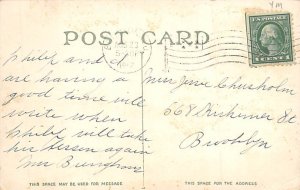 POST CARD
U.S. POSTAGE
1 CENT 1
Philip and I
are having a
good time will
write when
Philip will take
his lesson again
Mrs
Mrs Jane Chisholm
568 St
Brooklyn
THIS SPACE MAY BE USED FOR MESSAGE
THIS SPACE FOR THE ADDRESS